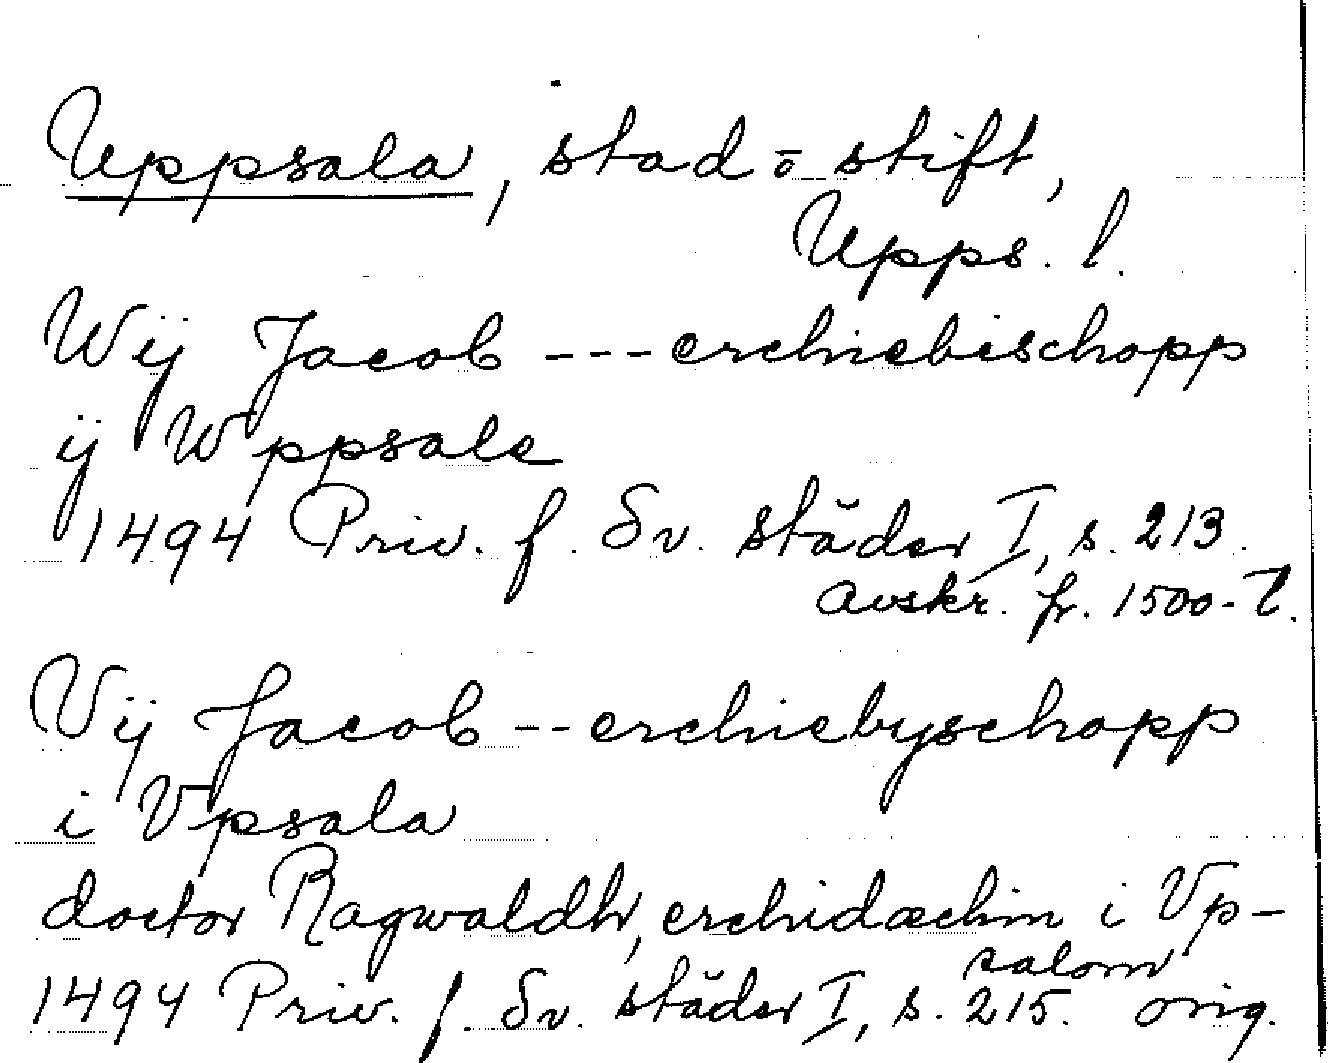 Uppsala, stad o stift,
Upps. l.
Wij Jacob --- erchiebischopp
ij Wppsale
1494 Priv. f. Sv. städer I, s. 213.
Avskr. fr. 1500-t.
Vij Jacob -- erchiebyschopp
i Vpsala
doctor Ragwaldh, erchidæchin i Vp-
salom
1494 Priv. f. Sv. städer I, s. 215. orig.